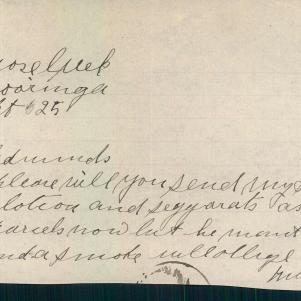 ose Creek
ooringa
t 25
Edmunds
Please will you send my
lotion and seggarats as
ariels now but he want
nd a smoke will oblige